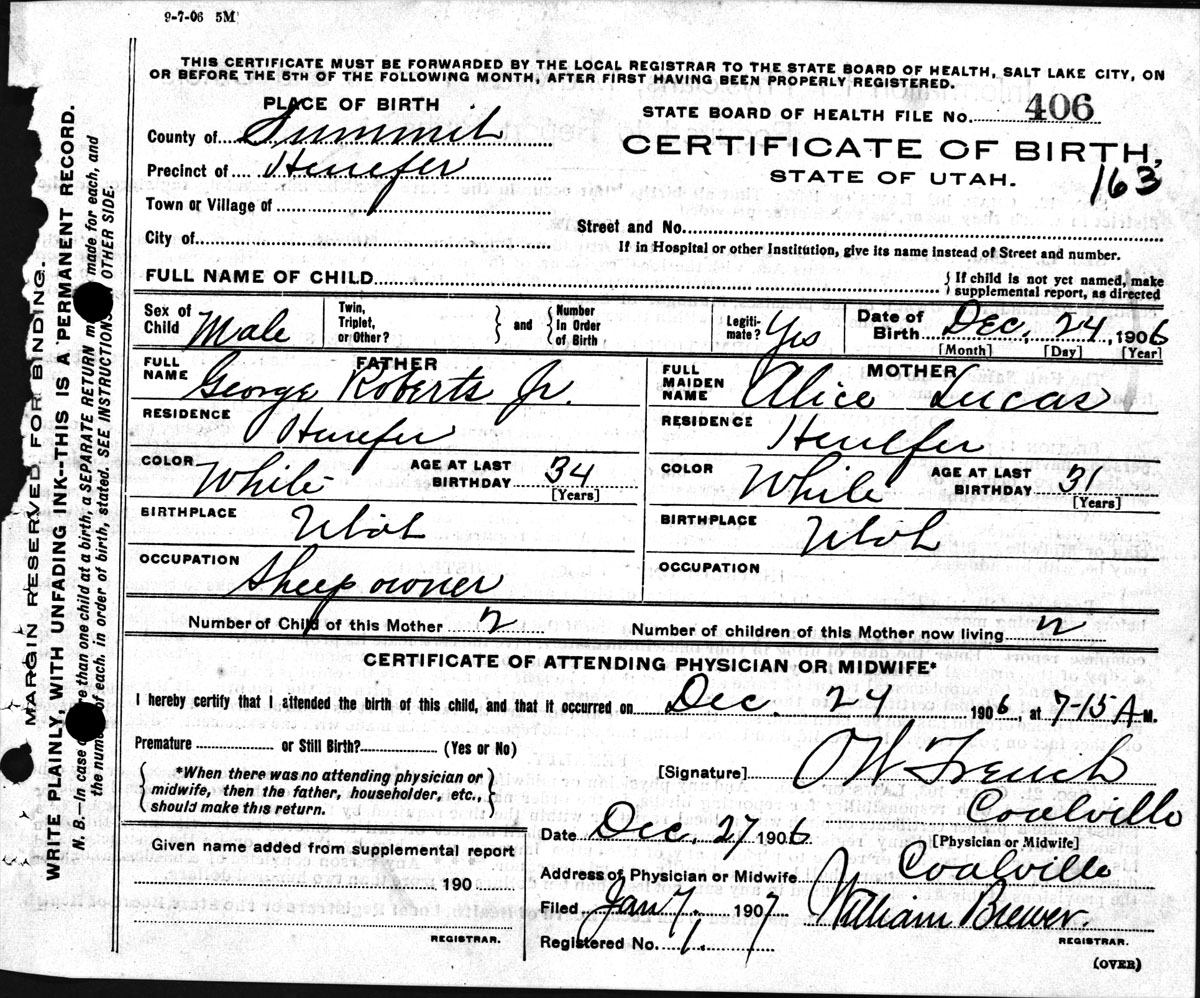 9-7-06 5M
THIS CERTIFICATE MUST BE FORWARDED BY THE LOCAL REGISTRAR TO THE STATE BOARD OF HEALTH, SALT LAKE CITY, ON
OR BEFORE THE 5TH OF THE FOLLOWING MONTH, AFTER FIRST HAVING BEEN PROPERLY REGISTERED.
PLACE OF BIRTH
County of Summit
Precinct of Henefer
Town or Village of
City of
STATE BOARD OF HEALTH FILE No. 406
CERTIFICATE OF BIRTH,
STATE OF UTAH.
163
Street and No.
If in Hospital or other Institution, give its name instead of Street and number.
FULL NAME OF CHILD
If child is not yet named, make
supplemental report, as directed
Sex of Child Male
Twin, Triplet, or Other?
and Number in Order of Birth
Legiti-mate? Yes
Date of Birth Dec. 24, 1906
[Month] [Day] [Year]
FATHER
FULL NAME George Roberts Jr.
RESIDENCE Henefer
COLOR White AGE AT LAST BIRTHDAY 34 [Years]
BIRTHPLACE Utah
OCCUPATION Sheep owner
MOTHER
FULL MAIDEN NAME Alice Lucas
RESIDENCE Henefer
COLOR White AGE AT LAST BIRTHDAY 31 [Years]
BIRTHPLACE Utah
OCCUPATION
Number of Child of this Mother 2 Number of children of this Mother now living 2
CERTIFICATE OF ATTENDING PHYSICIAN OR MIDWIFE*
I hereby certify that I attended the birth of this child, and that it occurred on Dec. 24 1906, at 7-15 A M.
Premature or Still Birth? (Yes or No)
*When there was no attending physician or
midwife, then the father, householder, etc.,
should make this return.
[Signature] O W French
Coalville
[Physician or Midwife]
Date Dec. 27 1906
Address of Physician or Midwife Coalville
Given name added from supplemental report
190
REGISTRAR.
Filed Jan 1. 1907 William Brewer.
Registered No. 1. REGISTRAR.
(OVER)
MARGIN RESERVED FOR BINDING.
WRITE PLAINLY, WITH UNFADING INK--THIS IS A PERMANENT RECORD.
N. B.—In case of more than one child at a birth, a SEPARATE RETURN must be made for each, and
the number of each, in order of birth, stated. SEE INSTRUCTIONS ON OTHER SIDE.